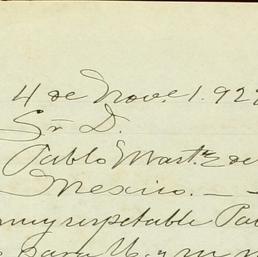 4 de Nove. 1.92
Sr. D.
Pablo Mart.z de
Mexico. —
my respetable
para U. y